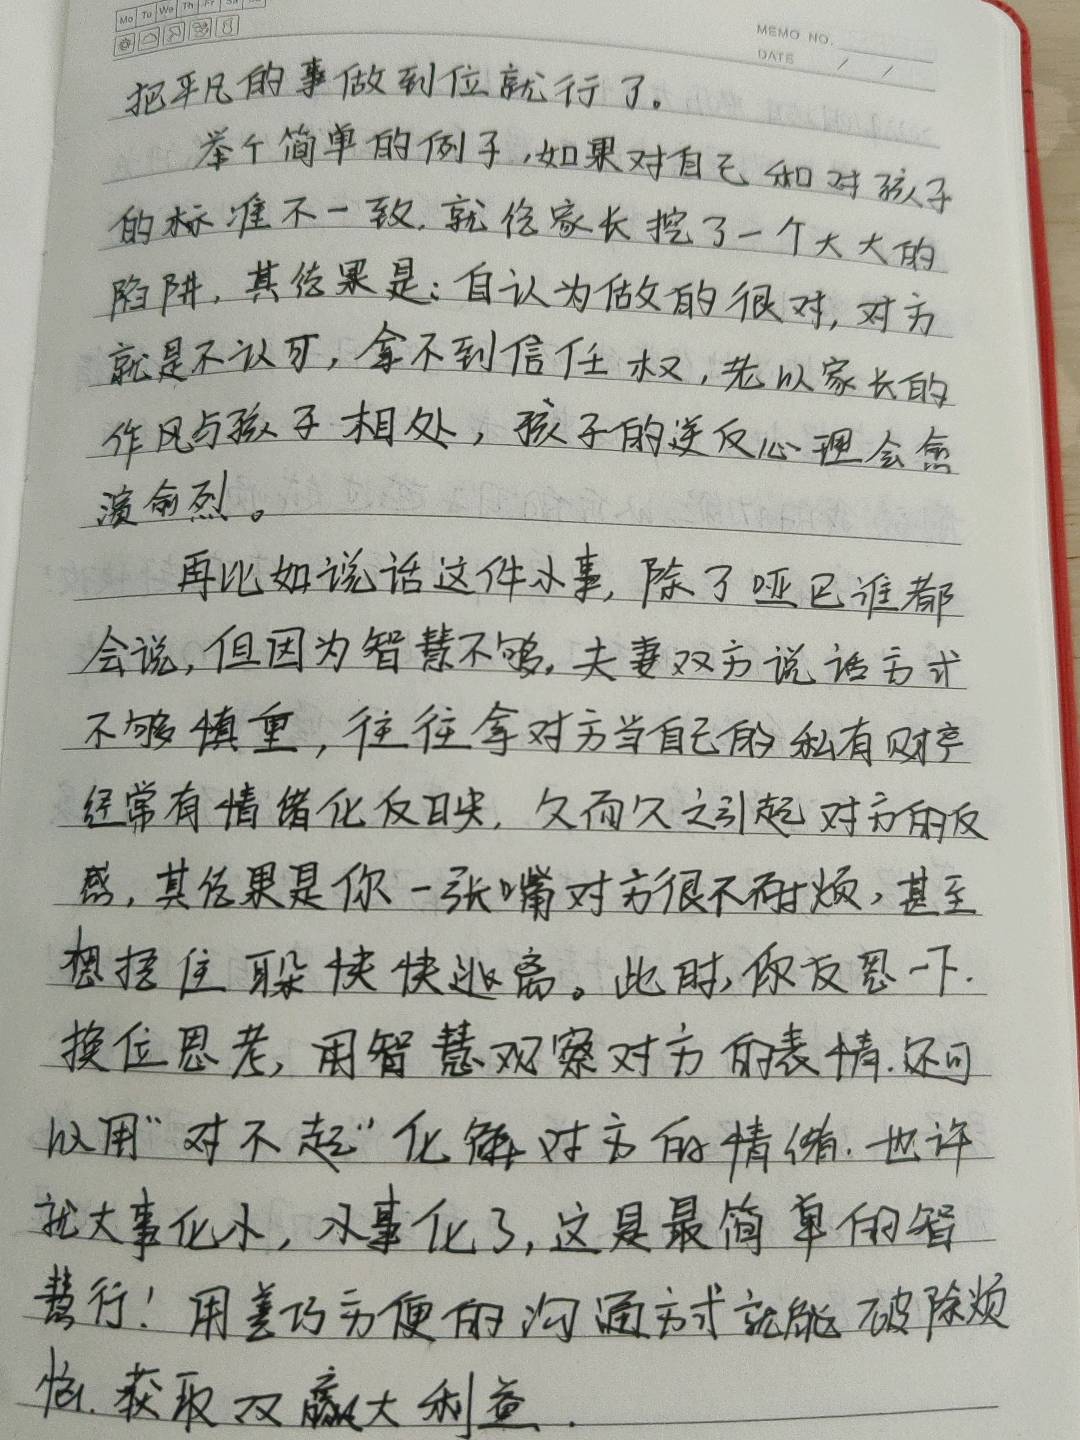 Mo Tu We Th Fr Sa
MEMO NO.
DATE / /
把平凡的事做到位就行了。
举个简单的例子,如果对自己和对孩子
的标准不一致.就给家长挖了一个大大的
陷阱,其结果是:自认为做的很对,对方
就是不认可,拿不到信任权,老以家长的
作风与孩子相处,孩子的逆反心理会愈
演愈烈。
再比如说话这件小事,除了哑巴谁都
会说,但因为智慧不够,夫妻双方说话方式
不够慎重,往往拿对方当自己的私有财产
经常有情绪化反映,久而久之引起对方的反
感,其结果是你一张嘴对方很不耐烦,甚至
想捂住耳朵快快逃离。此时,你反思一下.
换位思考,用智慧观察对方的表情.还可
以用"对不起"化解对方的情绪.也许
就大事化小,小事化了,这是最简单的智
慧行!用善巧方便的沟通方式就能破除烦
恼.获取双赢大利益.